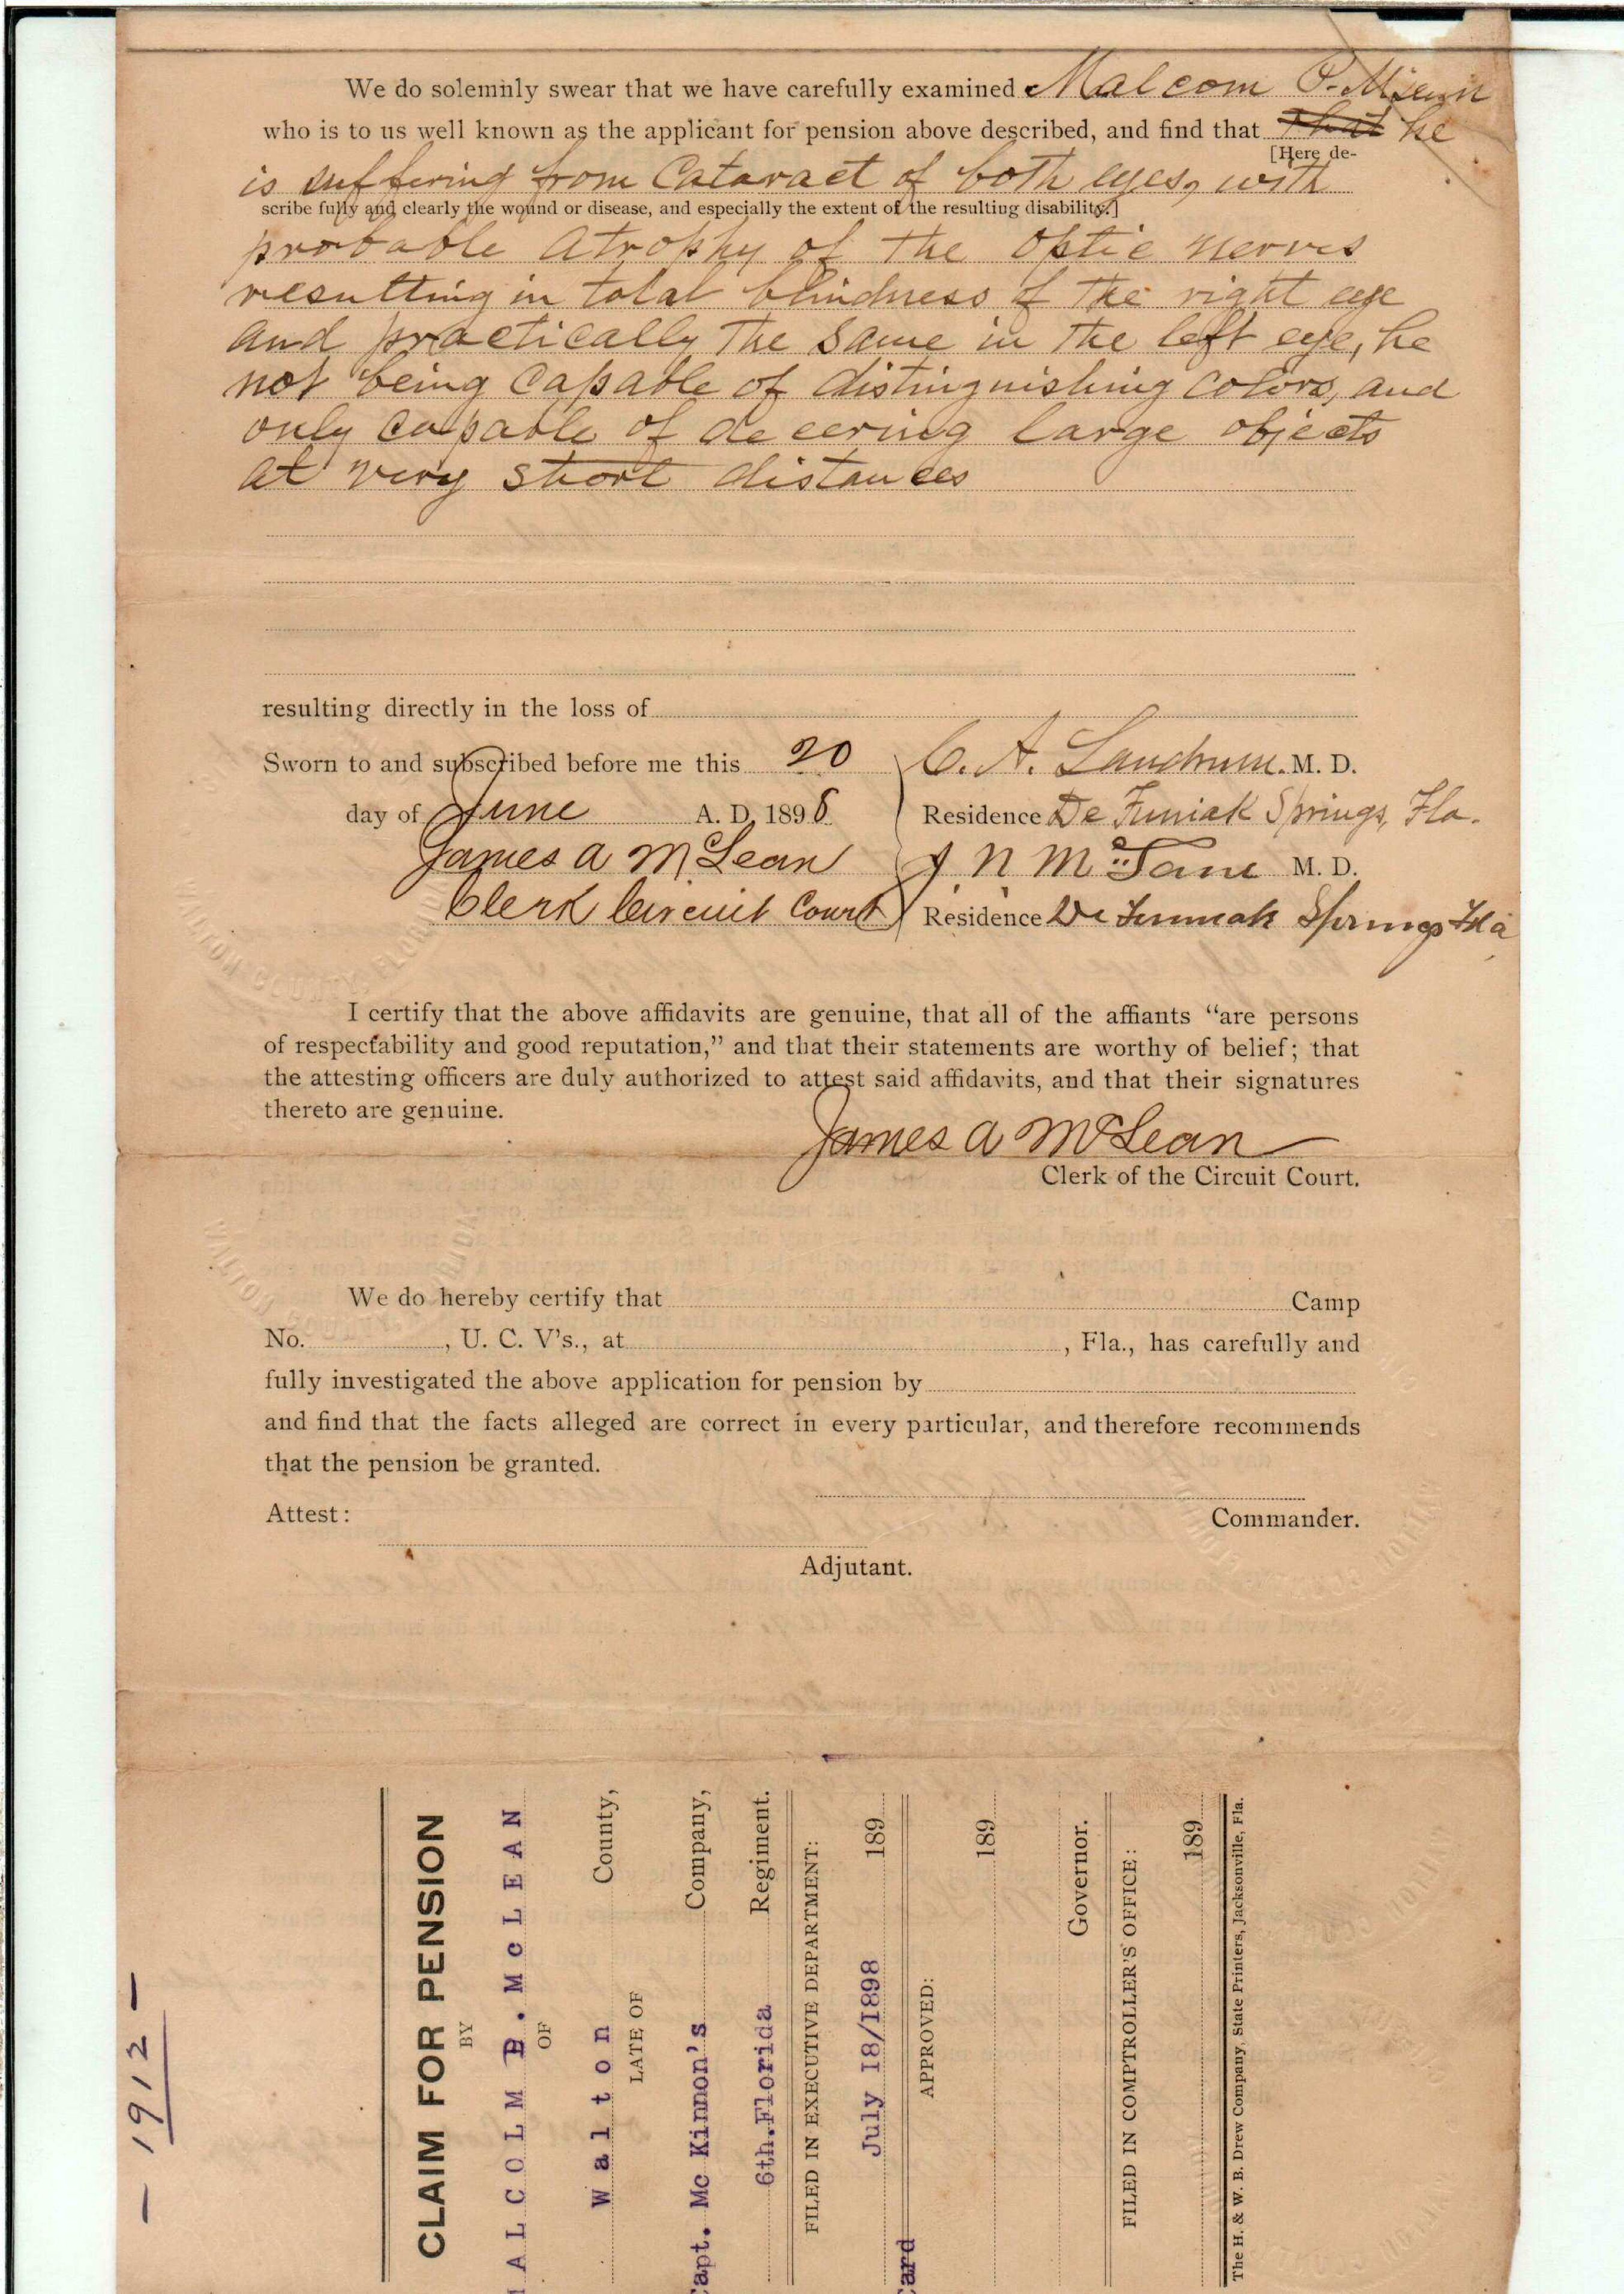 We do solemnly swear that we have carefully examined Malcom
who is to us well known as the applicant for pension above described, and find that that he
[Here de-
is suffering from Cataract of both eyes, with
scribe fully and clearly the wound or disease, and especially the extent of the resulting disability.]
probable atrophy of the optic nerves
resulting in total blindness of the right eye
and practically the same in the left eye, he
not being capable of distinguishing colors, and
only capable of deceering large objects
at very short distances
resulting directly in the loss of
Sworn to and subscribed before me this 20
day of June A. D. 1898
James A McLean
Clerk Circuit Court
C. A. Landrum. M. D.
Residence De Funiak Springs, Fla.
J N M. D.
Residence De Funiak Springs Fla
I certify that the above affidavits are genuine, that all of the affiants “are persons
of respectability and good reputation,” and that their statements are worthy of belief; that
the attesting officers are duly authorized to attest said affidavits, and that their signatures
thereto are genuine.
James A McLean
Clerk of the Circuit Court.
We do hereby certify that Camp
No. , U. C. V's., at , Fla., has carefully and
fully investigated the above application for pension by
and find that the facts alleged are correct in every particular, and therefore recommends
that the pension be granted.
Commander.
Attest:
Adjutant.
- 1912 -
CLAIM FOR PENSION
BY
ALCOLM B. McLEAN
OF
Walton County,
LATE OF
apt. Mc Kinnon's Company,
6th. Florida Regiment.
FILED IN EXECUTIVE DEPARTMENT:
July 18/1898 189
ard
APPROVED:
189
Governor.
FILED IN COMPTROLLER'S OFFICE:
189
The H. & W. B. Drew Company, State Printers, Jacksonville, Fla.